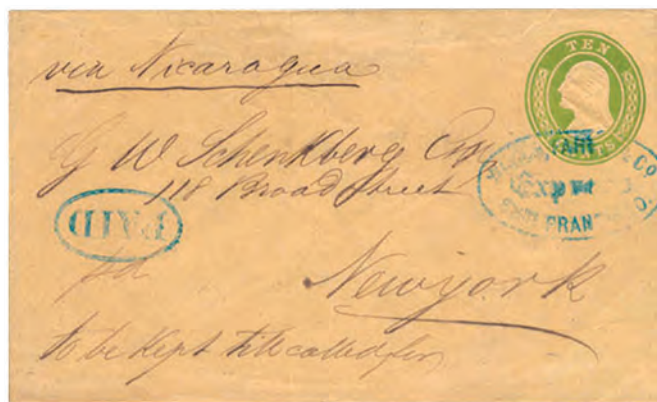 via Nicaragua
TEN
CENTS
G W Schenkberg Esq
118 Broad Street
Co
Express
SAN FRANCISCO.
PAID
pd
Newyork
to be kept till called for